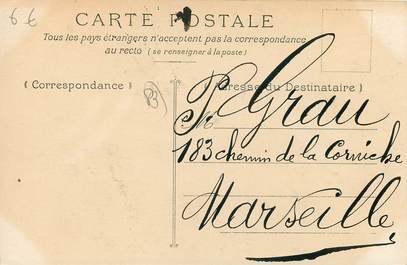 6€
CARTE POSTALE
Tous les pays étrangers n'acceptent pas la correspondance
au recto (se renseigner à la poste)
( Correspondance )
( Adresse du Destinataire )
Grau
183 chemin de la Corniche
Marseille